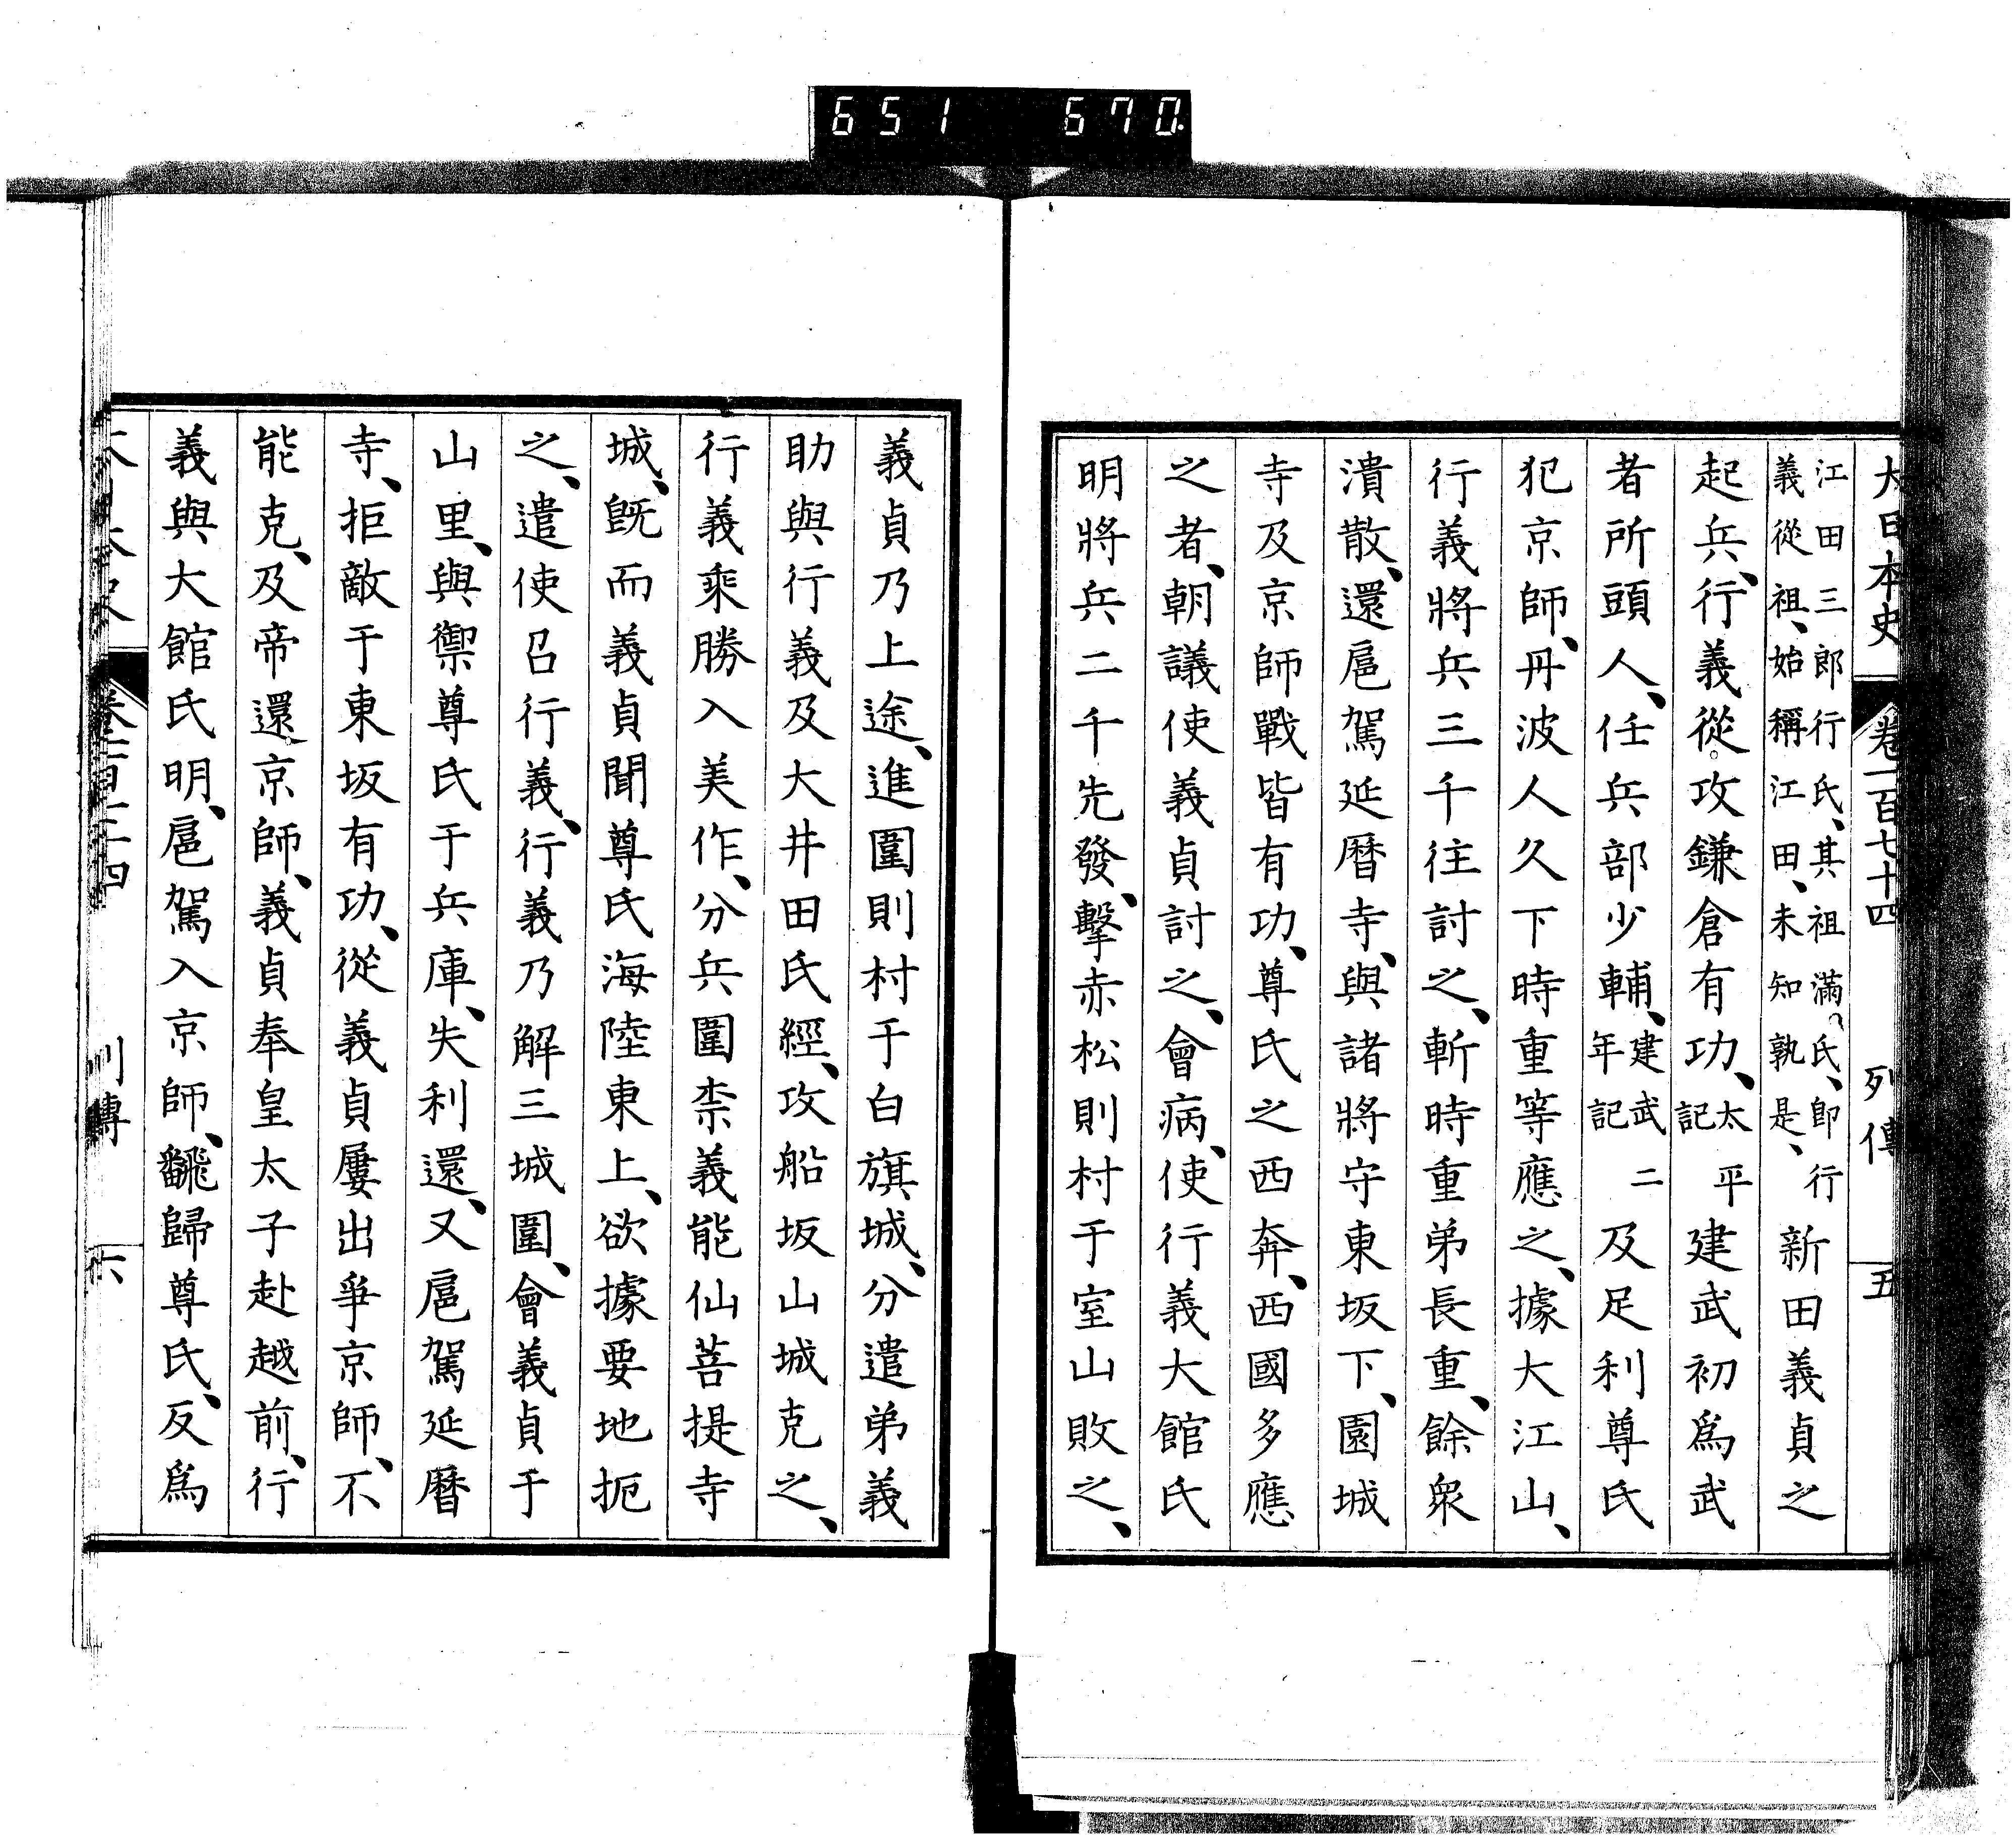 651 670.
大日本史 卷一百七十四 列傳 五
江田三郎行氏、其祖滿氏、卽行
義從祖、始稱江田、未知孰是、
新田義貞之
起兵、行義從攻鎌倉有功、太平記建武初爲武
者所頭人、任兵部少輔、建武二年記及足利尊氏
犯京師、丹波人久下時重等應之、據大江山、
行義將兵三千往討之、斬時重弟長重、餘衆
潰散、還扈駕延曆寺、與諸將守東坂下、園城
寺及京師戰皆有功、尊氏之西奔、西國多應
之者、朝議使義貞討之、會病、使行義大館氏
明將兵二千先發、擊赤松則村于室山敗之、
義貞乃上途、進圍則村于白旗城、分遣弟義
助與行義及大井田氏經、攻船坂山城克之、
行義乘勝入美作、分兵圍柰義能仙菩提寺
城、旣而義貞聞尊氏海陸東上、欲據要地扼
之、遣使召行義、行義乃解三城圍、會義貞于
山里、與禦尊氏于兵庫、失利還、又扈駕延曆
寺、拒敵于東坂有功、從義貞屢出爭京師、不
能克、及帝還京師、義貞奉皇太子赴越前、行
義與大館氏明、扈駕入京師、飜歸尊氏、反爲
列傳 六